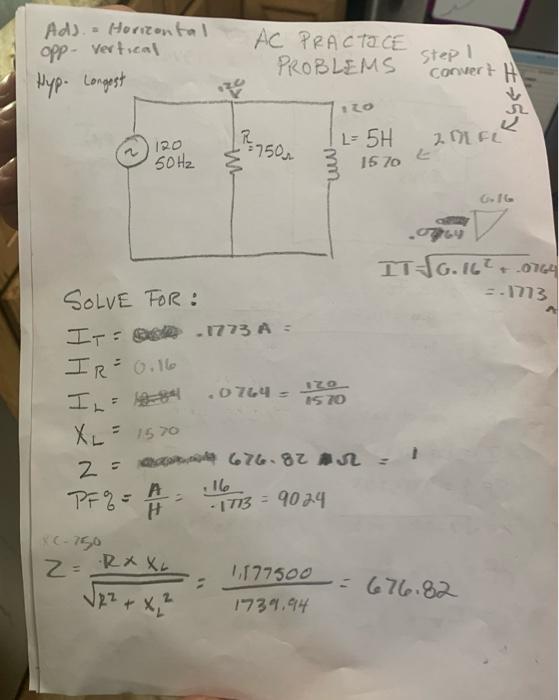 Adj. = Horizontal
opp - vertical
Hyp - Longest
AC PRACTICE
PROBLEMS
Step 1
convert H
Ω
2πFL
120
120
120
50Hz
R=750Ω
L= 5H
1570
0.16
.0764
IT=√0.16² + .0764
= .1773
SOLVE FOR:
IT = .1773 A =
IR = 0.16
IL = .0764 = 120/1570
XL = 1570
Z = 676.82 Ω = 1
PF% = A/H = .16/.1773 = 9024
XC-750
Z = R x XL / √R² + XL² = 1,177500 / 1739.94 = 676.82